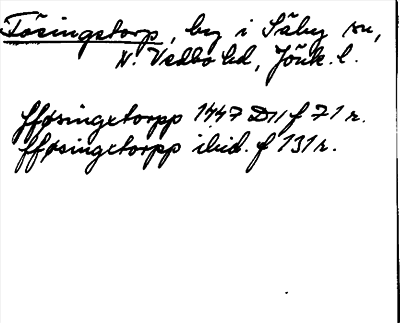 Fösingstorp, by i Säby sn,
N. Vedbo hd, Jönk. l.
fføsingxtorpp 1447 D11 f 71 r.
fføsingxtorpp ibid. f 131 r.